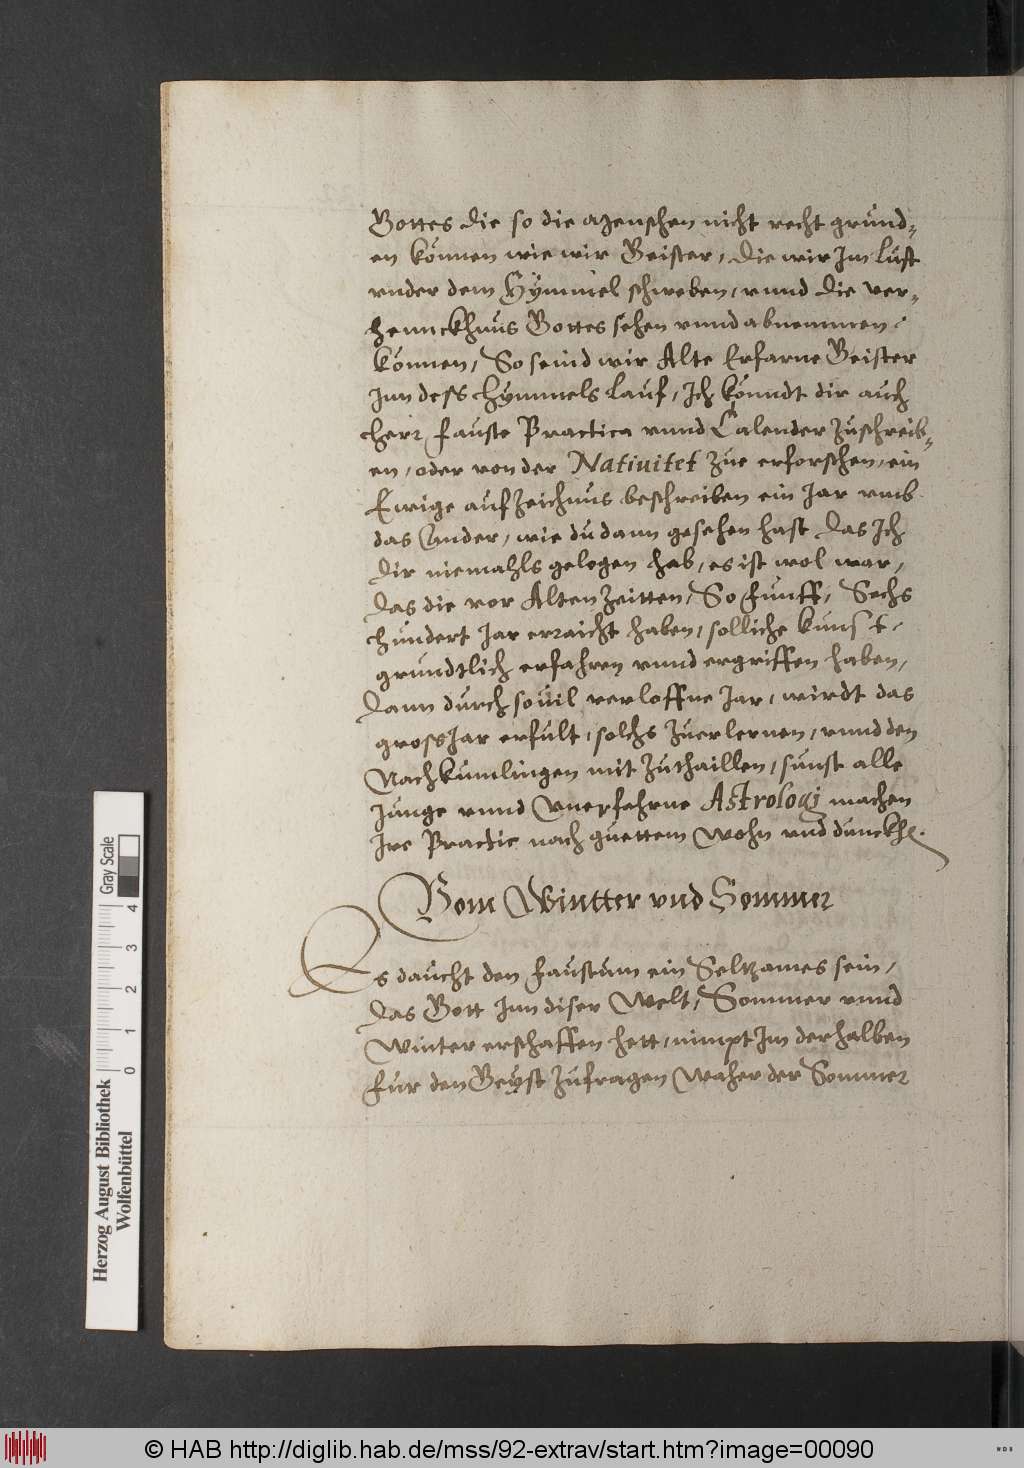 Gottes die so die Menschen nicht recht gründ„
en können wie wir Geister, die wir Im lüft
vnder dem Hÿmmel schweben, vnnd die ver„
hennckhnus Gottes sehen vnnd abnemmen
können, So seind wir Alte Erfarne Geister
Inn dess Hymmels lauf, Ich könndt dir auch
Herr Fauste Practica vnnd Calender zuschreib„
en, oder von der Natiuitet zue erforschen, ein
Ewige aufzeichnus beschreiben ein Jar vmb
das Ander, wie du dann gesehen hast das Ich
dir niemahls gelogen hab, es ist wol war,
das die vor Alten Zeitten, So Funff, Sechs
hundert Jar erraicht haben, solliche kunst
grundtlich erfahren vnnd ergriffen haben,
dann durch souil verloffne Jar, wirdt das
gross Jar erfult, solchs zuerlernen, vnnd den
Nachkumlingen mit zuthaillen, sunst alle
Junge vnnd Vnerfahrne Astrologj machen
Ire Practic nach guettem Wohn vnd dunckh.
Vom Wintter vnd Sommer
Es daucht den Faustum ein Seltzames sein,
das Gott Inn diser Welt, Sommer vnnd
Winter erschaffen hett, nimpt Im derhalben
für den Geyst zufragen Waher der Sommer
Herzog August Bibliothek
Wolfenbüttel
Gray Scale
0 1 2 3 4
© HAB http://diglib.hab.de/mss/92-extrav/start.htm?image=00090